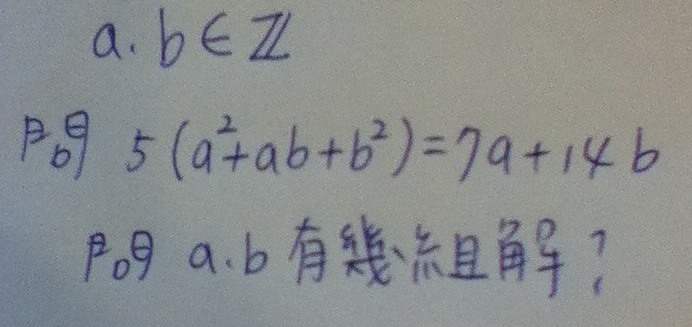 a.b∈ℤ
問 5(a²+ab+b²)=7a+14b
問 a.b 有幾組解?